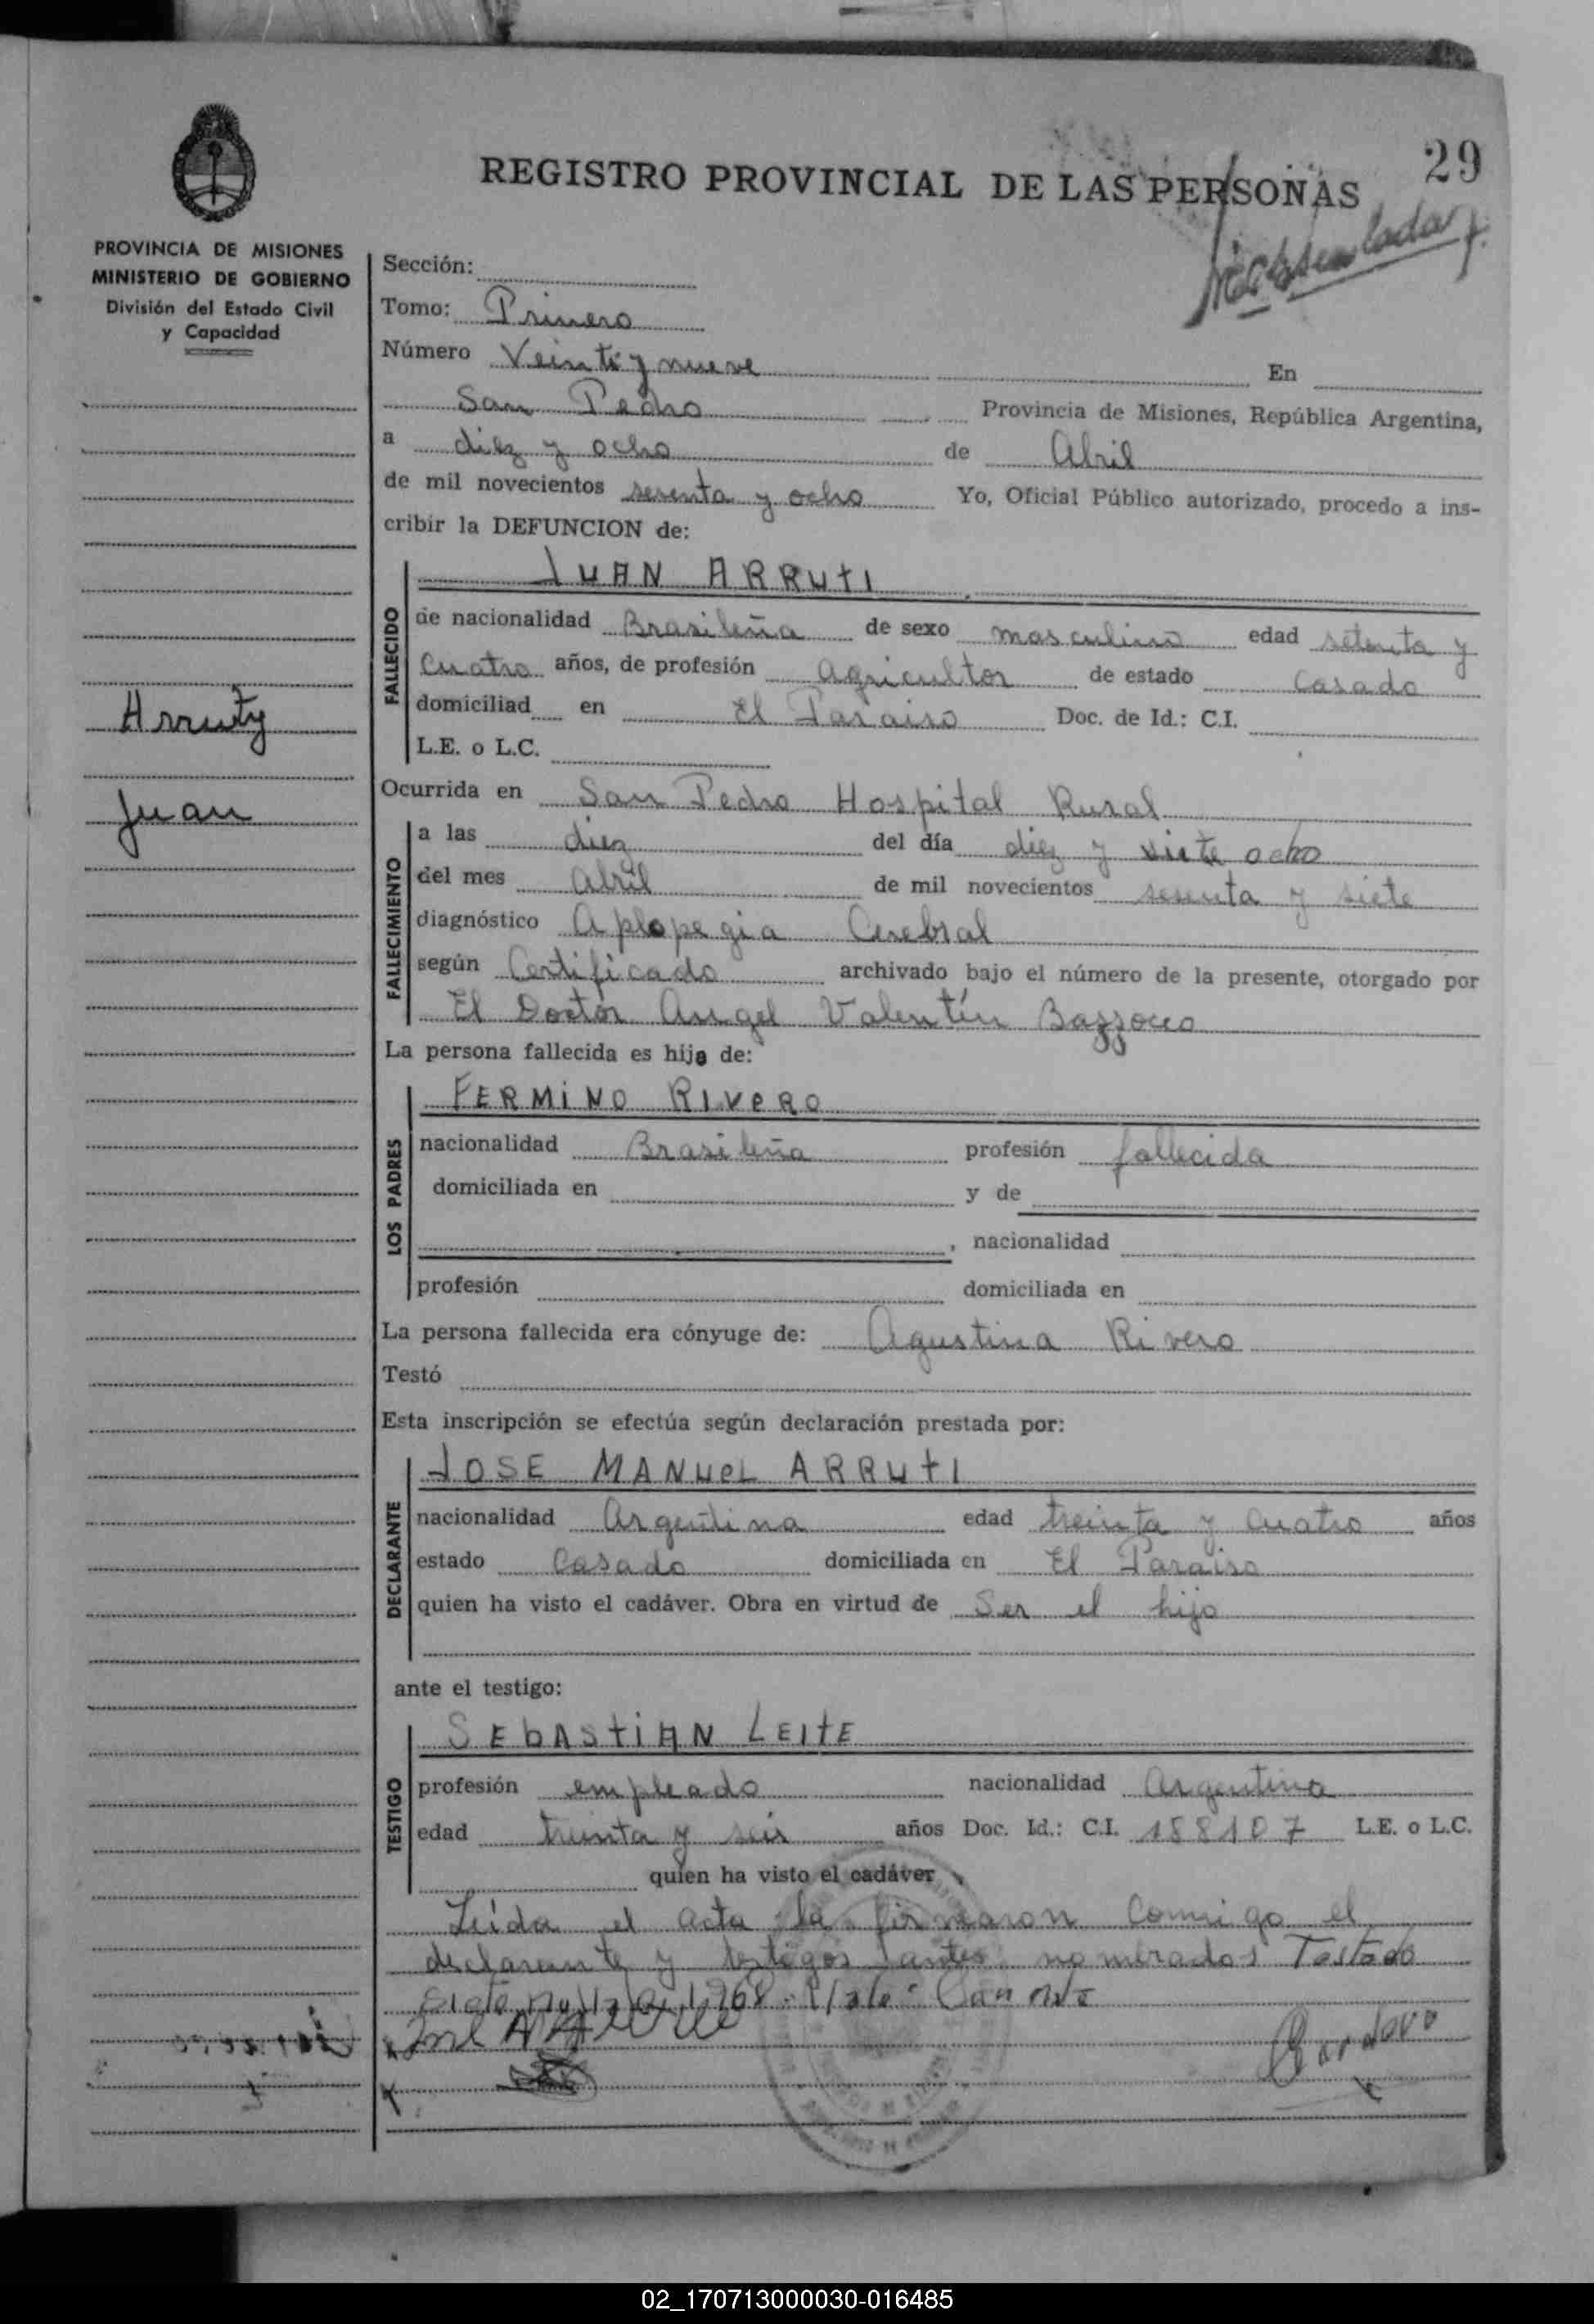 29
REGISTRO PROVINCIAL DE LAS PERSONAS
PROVINCIA DE MISIONES
MINISTERIO DE GOBIERNO
División del Estado Civil
y Capacidad
Arruty
Juan
Sección:
Tomo: Primero
Número Veinte y nueve En
San Pedro Provincia de Misiones, República Argentina,
a diez y ocho de Abril
de mil novecientos sesenta y ocho Yo, Oficial Público autorizado, procedo a ins-
cribir la DEFUNCION de:
FALLECIDO
JUAN ARRUTI
de nacionalidad Brasileña de sexo masculino edad setenta y
Cuatro años, de profesión agricultor de estado casado
domiciliad en El Paraiso Doc. de Id.: C.I.
L.E. o L.C.
Ocurrida en San Pedro Hospital Rural
FALLECIMIENTO
a las diez del día diez y siete ocho
del mes abril de mil novecientos sesenta y siete
diagnóstico Aplopegia Cerebral
según Certificado archivado bajo el número de la presente, otorgado por
El Doctor Angel Valentín Bazzocco
La persona fallecida es hijo de:
LOS PADRES
FERMINO RIVERO
nacionalidad Brasileña profesión fallecida
domiciliada en y de
, nacionalidad
profesión domiciliada en
La persona fallecida era cónyuge de: Agustina Rivero
Testó
Esta inscripción se efectúa según declaración prestada por:
DECLARANTE
JOSE MANUEL ARRUTI
nacionalidad Argentina edad treinta y cuatro años
estado Casado domiciliada en El Paraiso
quien ha visto el cadáver. Obra en virtud de Ser el hijo
ante el testigo:
TESTIGO
SEBASTIAN LEITE
profesión empleado nacionalidad Argentina
edad treinta y seis años Doc. Id.: C.I. 188107 L.E. o L.C.
quien ha visto el cadáver
Leida el acta la firmaron Conmigo el
declarante y testigos antes nombrados Testado
02_170713000030-016485